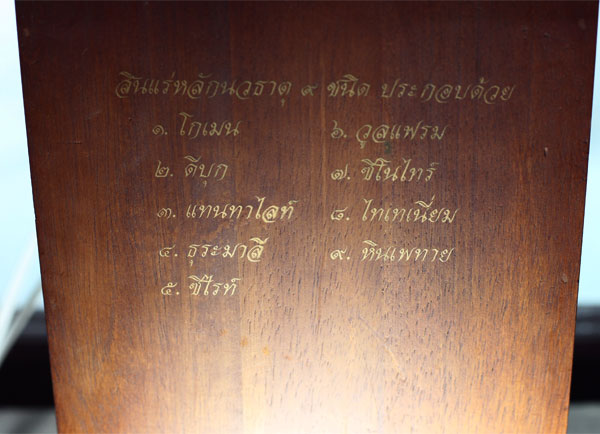 สินแร่หลักนวธาตุ ๙ ชนิด ประกอบด้วย
๑. โกเมน
๒. ดีบุก
๓. แทนทาไลท์
๔. ธุระมาลี
๕. ซีไรท์
๖. วูลแฟรม
๗. ซีโนไทร์
๘. ไทเทเนี่ยม
๙. หินเพทาย